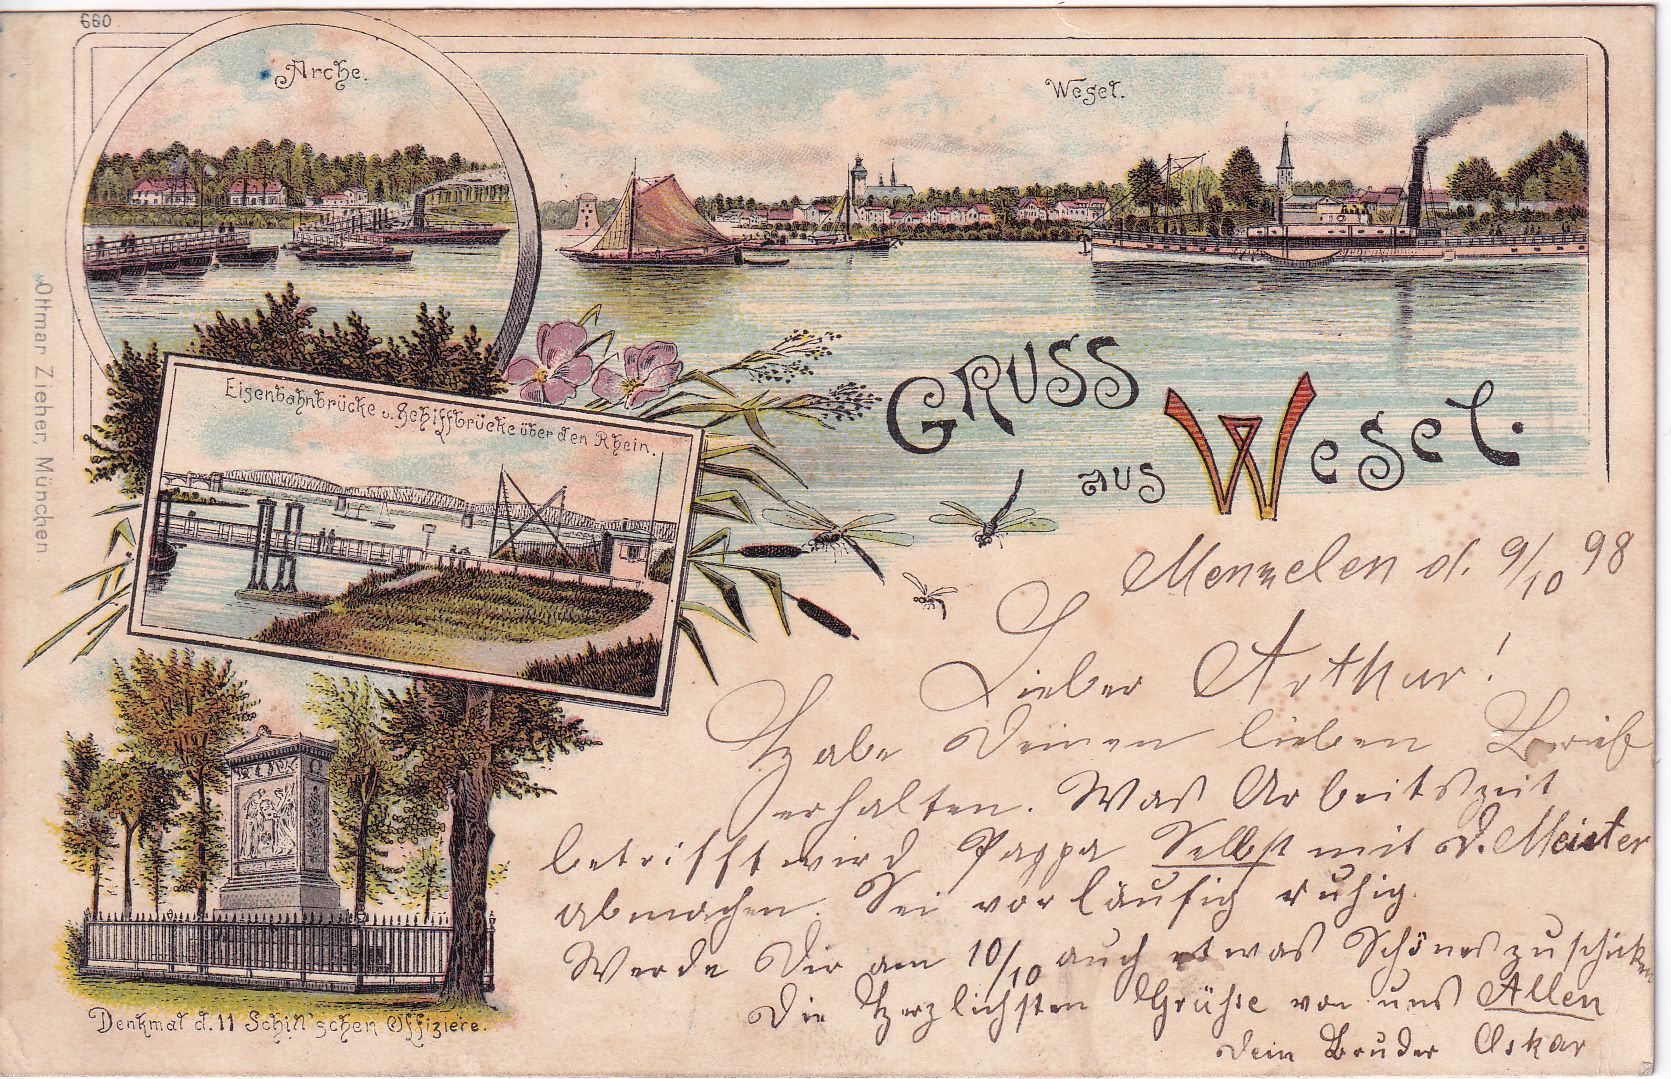 660
Arche.
Wesel.
Ottmar Zieher, München.
Eisenbahnbrücke u. Schiffbrücke über den Rhein.
GRUSS
aus Wesel.
Menzelen d. 9/10 98
Lieber Arthur!
Habe Deinen lieben Brief
erhalten. Was Arbeitszeit
betrifft wird Pappa Selbst mit d. Meister
abmachen. Sei vorläufig ruhig.
Werde Dir am 10/10 auch etwas Schönes zuschicken
Die Herzlichsten Grühse von uns Allen
Dein Bruder Oskar
Denkmal d. 11 Schill'schen Offiziere.